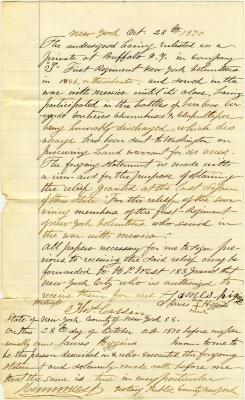 New York Oct. 28th 1870
The undersigned having enlisted as a
private at Buffalo N.Y. in Company
First Regiment New York Volunteers
in 1846, and served in the
war with Mexico until its close, having
participated in the battles of Vera Cruz Cerro
Gordo Contreras Churubusco & Chapultepec
being honorably discharged, which dis
charge has been sent to Washington on
procuring land warrant for 160 acres.
The forgoing Statement is made with
a view and for the purpose of obtaining
the relief granted at the last Session
of this State "For the relief of the sur
viving members of the first Regiment of
New York Volunteers who served in
the war with Mexico."
All papers necessary for me to sign pre
vious to receiving the said relief may be
forwarded to H. P. West 183 Grand St
New York City who is authorized to
receive them for me
James Higgins
mark
State of New York County of New York SS.
On this 28th day of October A.D. 1870 before me per
sonally came James Higgins known to me to
be the person described in & who executed the forgoing
Statement and solemnly made oath before me
that the same is true in every particular
Notary Public County New York